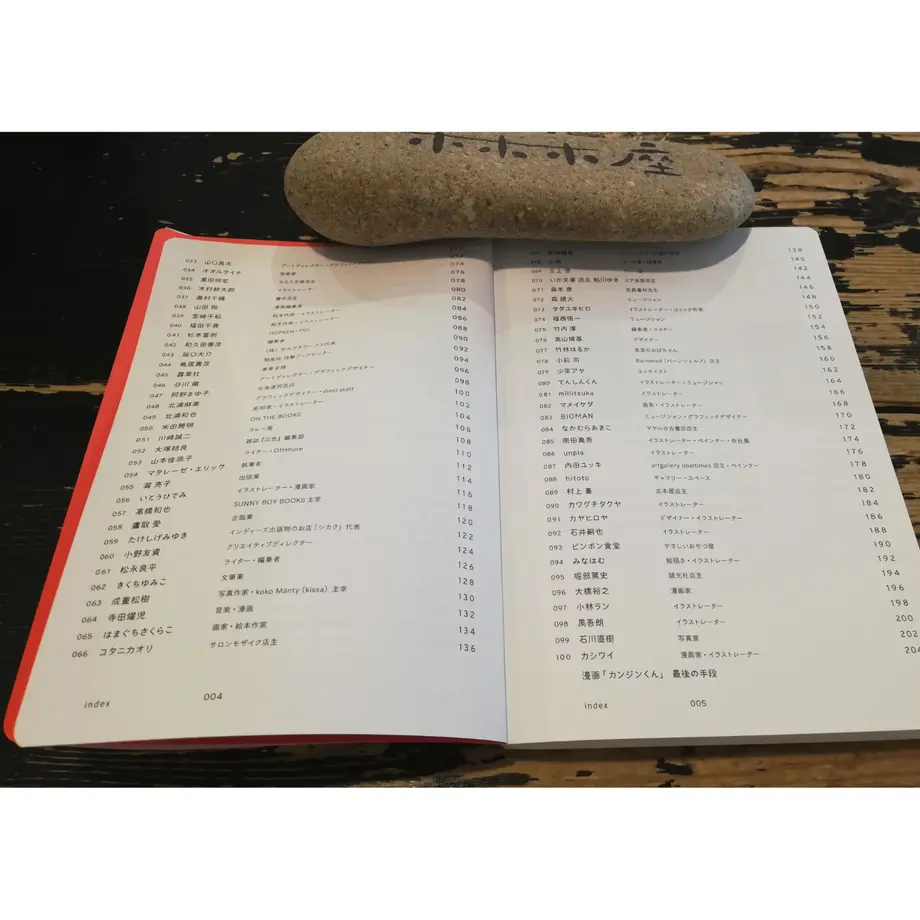 ホホホ座
033 山口良太 アートディレクター・グラフィックデザイナー
034 オオルタイチ 音楽家 074
035 黒田明宏 076
036 木村耕太郎 イラストレーター 078
037 奥村千織 書店店主 080
038 山田 082
039 宮崎 絵本作家・イラストレーター 084
040 福田千春 絵本作家・イラストレーター 086
041 杉本重則 HOPKEN・POL 088
042 和久田善彦 編集者 090
043 阪口大介 092
044 鳥尾 094
045 轟車社 車輩主 096
046 谷川 アートディレクター・グラフィックデザイナー 098
047 阿野まゆ子 100
048 北浦麻美 グラフィックデザイナー 102
049 北浦和也 美術家・イラストレーター 104
050 米田雅明 ON THE BOOKS 106
051 川﨑誠二 カレー屋 108
052 大塚結良 110
053 山本佳奈子 ライター・Offshore 112
054 マタレーゼ・エリック 執筆者 114
055 瀧 亮子 出版業 116
056 いとうひでみ イラストレーター・漫画家 118
057 高橋和也 SUNNY BOY BOOKS 主宰 120
058 鷹取 愛 企画業 122
059 たけしげみゆき インディーズ出版物のお店「シカク」代表 124
060 小野友資 クリエイティブディレクター 126
061 松永良平 ライター・編集者 128
062 きくちゆみこ 文筆業 130
063 成重松樹 写真作家・koko Mänty (kissa) 主宰 132
064 寺田燿児 音楽・漫画 134
065 はまぐちさくらこ 画家・絵本作家 136
066 コタニカオリ サロンモザイク店主
index 004
138
140
069 三上 142
070 いか文庫 店主 粕川ゆき エア本屋店主 144
071 森本 146
072 森 雄大 ミュージシャン 148
073 タダユキヒロ イラストレーター・コミック作家 150
074 植西信一 ミュージシャン 152
075 竹内 厚 編集者・ライター 154
076 高山燦基 デザイナー 156
077 竹林はるか 158
078 小前 司 店主 160
079 少年アヤ エッセイスト 162
080 てんしんくん イラストレーター・ミュージシャン 164
081 miliitsuka イラストレーター 166
082 マメイケダ 画家・イラストレーター 168
083 BIOMAN ミュージシャン・グラフィックデザイナー 170
084 なかむらあきこ マヤルカ古書店店主 172
085 南田真吾 イラストレーター・ペインター・会社員 174
086 unpis イラストレーター 176
087 内田ユッキ artgallery opaltimes 店主・ペインター 178
088 hitoto ギャラリー・スペース 180
089 村上 豪 古本屋店主 182
090 カワグチタクヤ イラストレーター 184
091 カヤヒロヤ デザイナー・イラストレーター 186
092 石井嗣也 イラストレーター 188
093 ピンポン食堂 やさしいおやつ屋 190
094 みなはむ 絵描き・イラストレーター 192
095 堀部篤史 誠光社店主 194
096 大橋裕之 漫画家 196
097 小林ラン イラストレーター 198
098 黒吾朗 イラストレーター 200
099 石川直樹 写真家 202
100 カシワイ 漫画家・イラストレーター 204
漫画「カンジンくん」 最後の手段
index 005